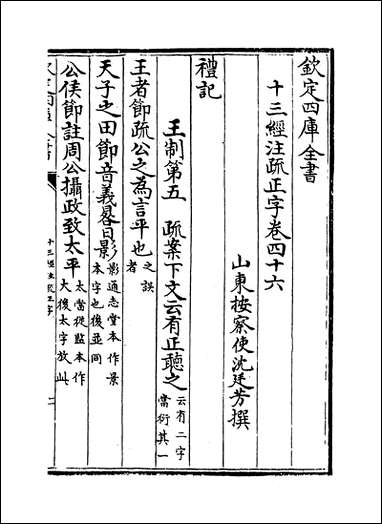 欽定四庫全書
十三經注疏正字卷四十六
山東按察使沈廷芳撰
禮記
王制第五　疏案下文云有正聽之云有二字當衍其一
王者節疏公之為言平也之誤者
天子之田節音義晷日影影通志堂本作景本字也後並同
公侯節註周公攝政致太平太當從監本作大後太字放此